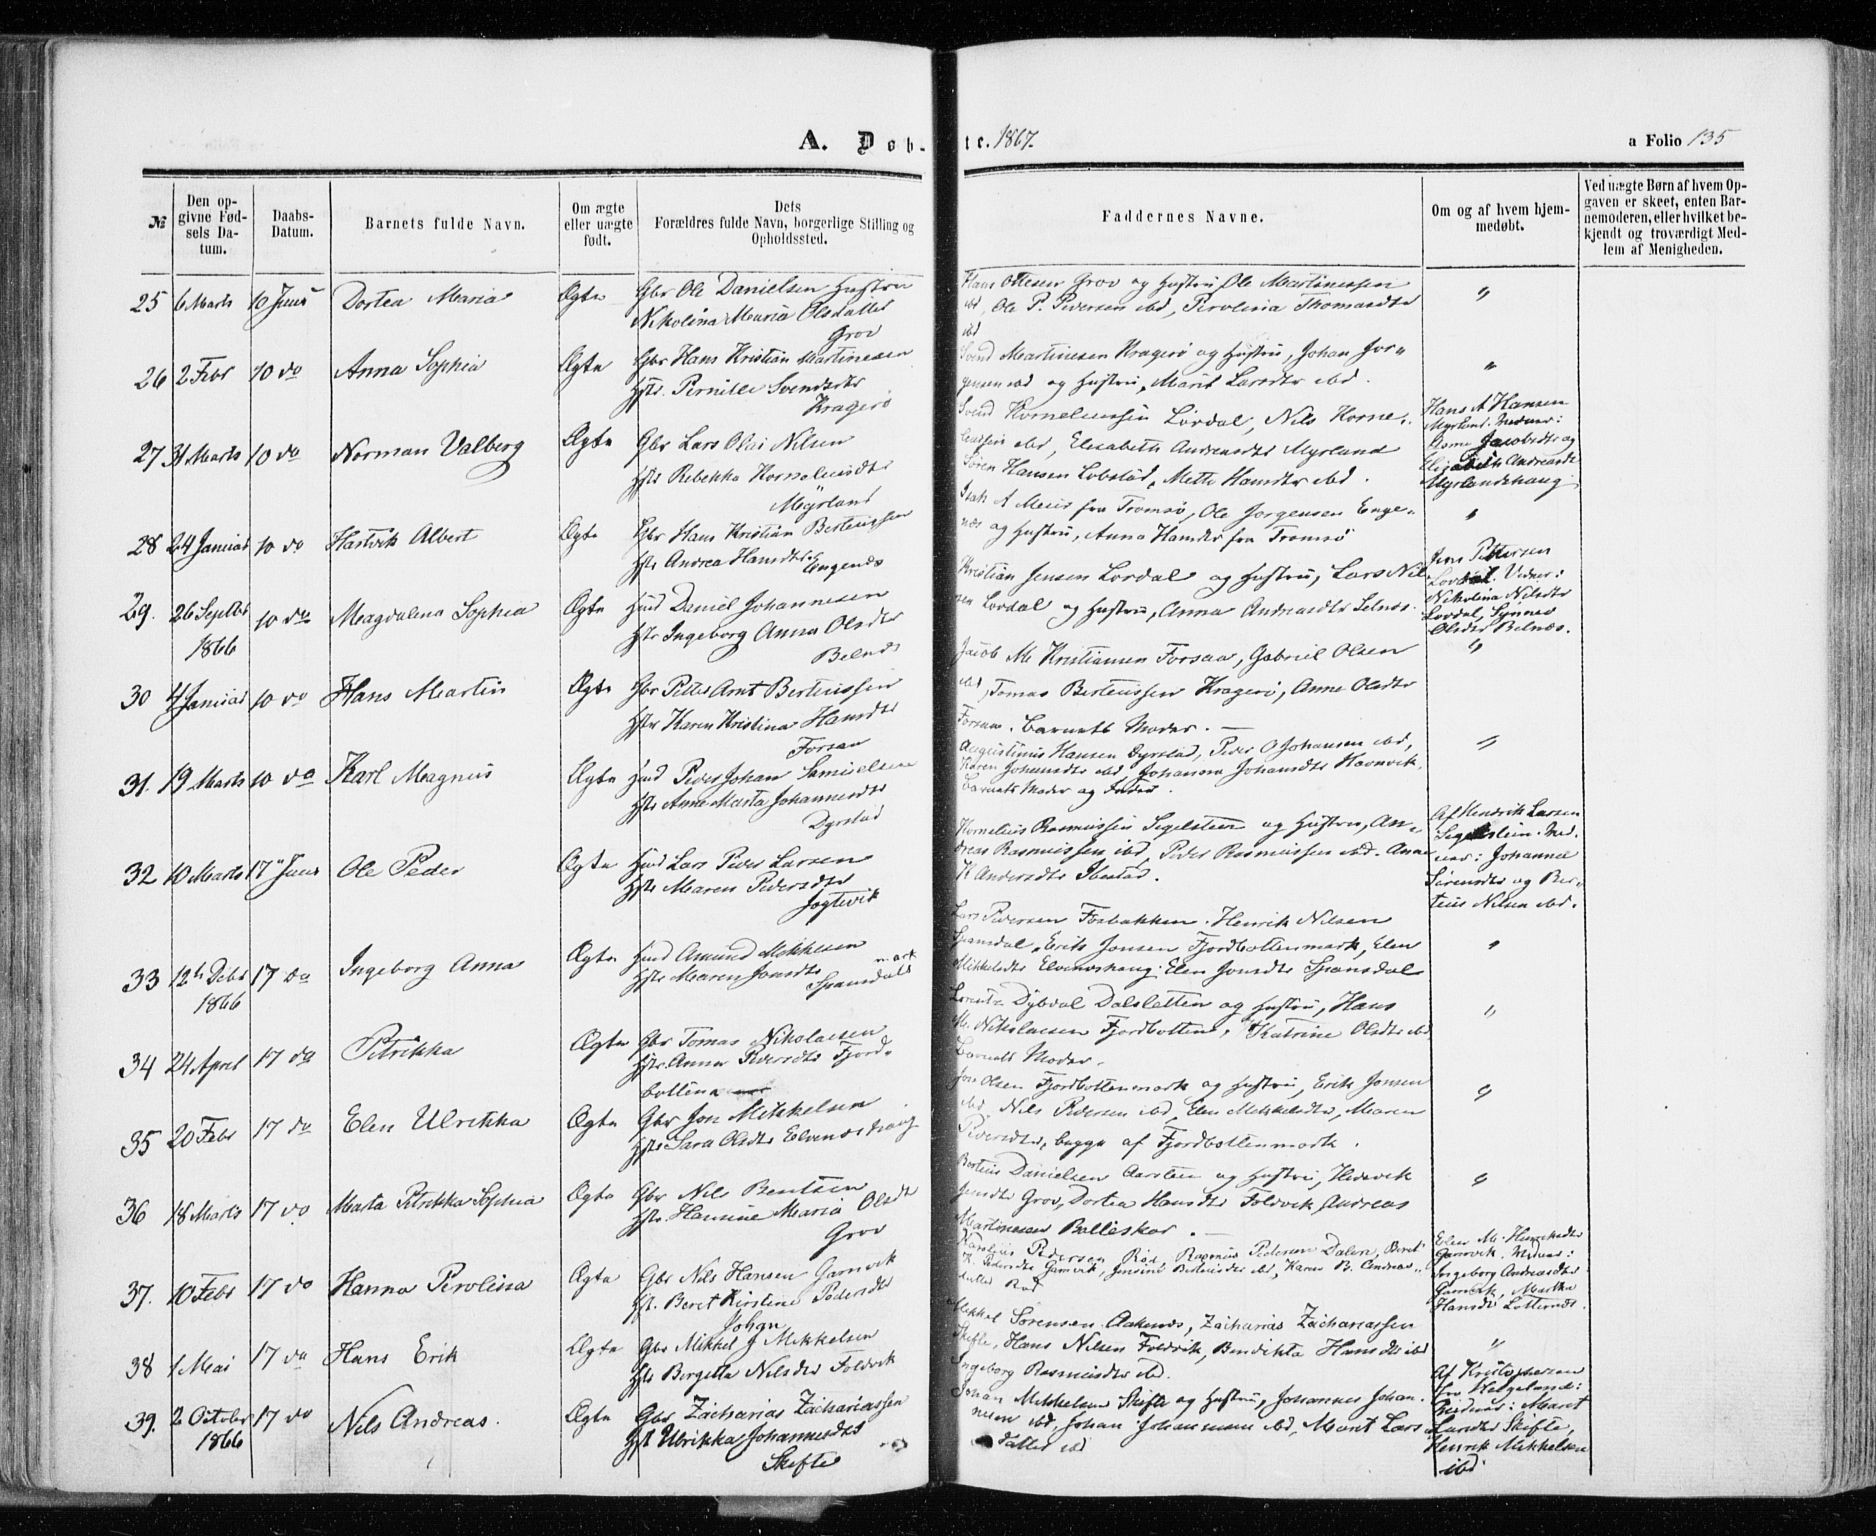 A. Dob-te. 1867.
a Folio 135
№
Den opgivne Fødsels Datum.
Daabs-Datum.
Barnets fulde Navn.
Om ægte eller uægte født.
Dets Forældres fulde Navn, borgerlige Stilling og Opholdssted.
Faddernes Navne.
Om og af hvem hjemmedøbt.
Ved uægte Børn af hvem Opgaven er skeet, enten Barnemoderen, eller hvilket bekjendt og troværdigt Medlem af Menigheden.
25 6 Marts 10 Juni Dortea Maria Ægte Gbr Ole Danielsen Hustru
Nikolina Maria Olsdatter
Grov
Hans Ottesen Grov og Hustru, Ole Martinessen
ibd, Ole P. Pedersen ibd, Perolina Thomasdtr
ibd
"
26 2 Febr 10 do Anna Sophia Ægte Gbr Hans Kristian Martinesen
Hstr. Pernille Svendsdtr
Kragerø
Svend Martinesen Kragerø og Hustru, Johan Jør-
gensen ibd og Hustru, Marit Larsdtr ibd.
"
27 31 Marts 10 do Norman Valberg Ægte Gbr Lars Olai Nilsen
Hstr Rebekka Korneliusdtr
Myrland
Svend Korneliussen Løvdal, Nils Korne-
liussen ibd, Elisabeth Andreasdtr Myrland
Søren Hansen Lobstad, Mette Hansdtr ibd.
Hans A Hansen
Myrland. Vidner:
Jacobsdtr og
Elizabeth Andreasdtr
Myrlandshaug
28 24 Januar 10 do Hartvik Albert Ægte Gbr Hans Kristian Berteussen
Hstr Andrea Hansdtr Engenæs
Isak A Meier fra Tromsø, Ole Jørgensen Enge-
næs og Hustru, Anna Hansdtr fra Tromsø
"
29. 26 Septbr 10 do Magdalena Sophia Ægte Huusd Daniel Johannesen
1866
Hstr Ingeborg Anna Olsdtr
Belnæs
Kristian Jensen Løvdal og Hustru, Lars Nil-
sen Løvdal og Hustru, Anna Andreasdtr Selnæs.
Jens Pettersen
Løvdal. Vidner:
Nikolina Nilsdtr
Løvdal, Synnev
Olsdtr Belnæs.
30 4 Januar 10 do Hans Martin Ægte Gbr Petter Arnt Berteussen
Hstr Karen Kristina Hansdtr
Forsaa
Jacob M. Kristiansen Forsaa, Gabriel Olsen
ibd, Tomas Berteussen Kragerø, Anne Olsdtr
Forsaa. Barnets Moder. —
"
31. 19 Marts 10 do Karl Magnus Ægte Huusd Peder Johan Samuelsen
Hstr Anne Marta Johannesdtr
Dyrstad
Augustinus Hansen Dyrstad, Peder O Johansen ibd,
Karen Johansdtr ibd, Johanna Johansdtr Havnvik,
Barnets Moder og Fader.
"
32 10 Marts 17 Juni Ole Peder Ægte Huusd Lars Peder Larsen
Hstr Maren Pedersdtr
Jogtevik
Kornelius Rasmussen Segelsteen og Hustru, An-
dreas Rasmussen ibd, Peder Rasmussen ibd. Anne
K Andersdtr Ibestad.
Af Hendrik Larsen
Segelstein. Vid-
ner: Johanna
Sørensdtr og Ber-
teus Nilsen ibd.
33 12te Debr 17 do Ingeborg Anna Ægte Huusd Amund Mikkelsen
1866
Hstr Maren Jonsdtr
Spansdalsmark
Lars Pedersen Forbakken. Henrik Nilsen
Spansdal, Erik Jonsen Fjordbottenmark, Elen
Mikkelsdtr Elvenæshaug. Elen Jonsdtr Spansdal
"
34 24 April 17 do Petrikka Ægte Gbr Tomas Nikolaisen
Hstr Anna Pedersdtr Fjord-
bottena
Lorents Dybdal Dalsletten og Hustru, Hans
M. Nikolaisen Fjordbotten, Katrine Olsdtr ibd
Barnets Moder.
"
35 20 Febr 17 do Elen Ulrikka Ægte Gbr Jon Mikkelsen
Hstr Sara Olsdtr Elvenæshaug
Jon Olsen Fjordbottenmark og Hustru, Erik Jonsen
ibd. Nils Pedersen ibd, Elen Mikkelsdtr, Maren
Pedersdtr, begge af Fjordbottenmark.
"
36 18 Marts 17 do Marta Petrikka Sophia Ægte Gbr Nils Bentsen
Hstr Hanna Maria Olsdtr
Grov
Berteus Danielsen Aarsten og Hustru, Hedevik
Jensdtr Grov, Dortea Hansdtr Foldvik, Andreas
Martinesen Balleskar. —
"
37. 10 Febr 17 do Hanna Perolina Ægte Gbr Nils Hansen Gamvik
Hst. Beret Kirstine Pedersdtr
Karelius Pedersen Rød, Rasmus Pedersen Dalen, Beret
K. Pedersdtr Gamvik, Jensine Berteusdtr ibd, Karen B. Andreas-
datter Rød
Elen M. Henriksdtr
Gamvik. Vidner:
Ingeborg Andreasdtr
Gamvik, Martha
Hansdtr Lotternæs.
38 1 Mai 17 do Hans Erik Ægte Gbr Mikkel Johan J Mikkelsen
Hstr Bergetta Nilsdtr Foldvik
Mikkel Sørensen Aaknæs, Zacharias Zachariassen
Skifte, Hans Nilsen Foldvik, Bendikta Hansdtr ibd
Ingeborg Rasmusdtr ibd.
"
39. 2 October 17 do Nils Andreas. Ægte Gbr Zacharias Zachariassen
1866
Hst Ulrikka Johannesdtr
Skifte
Johan Mikkelsen Skifte og Hustru, Johannes Johan-
nesen ibd, Johan Johannesen ibd, Marit Lars-
datter ibd
Af Kristophersen
fra Helgeland:
Vidner: Marit
Larsdtr Skifte,
Henrik Mikkelsen
ibd.